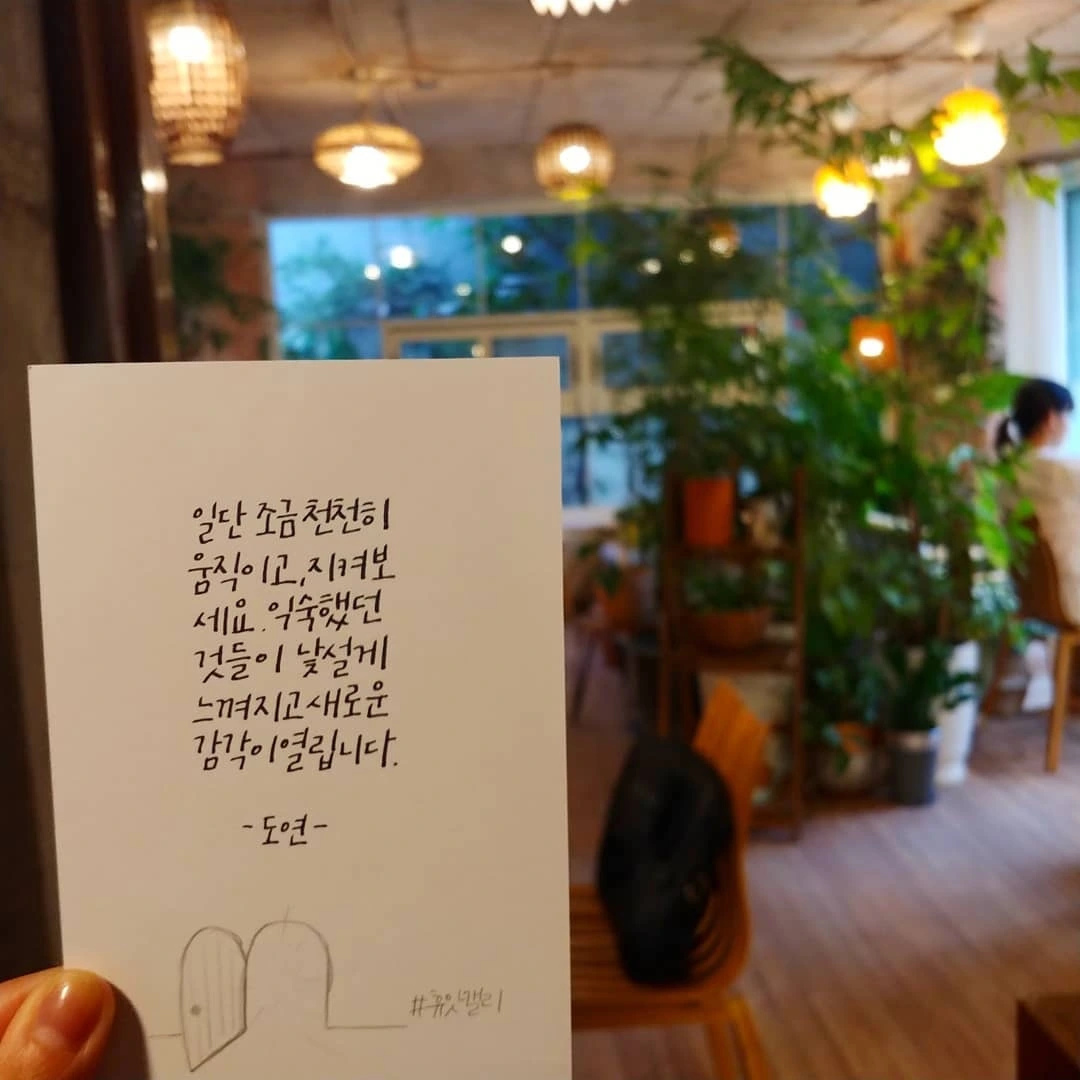 일단 조금 천천히
움직이고, 지켜보
세요. 익숙했던
것들이 낯설게
느껴지고 새로운
감각이 열립니다.
-도연-
#휴잇캘리